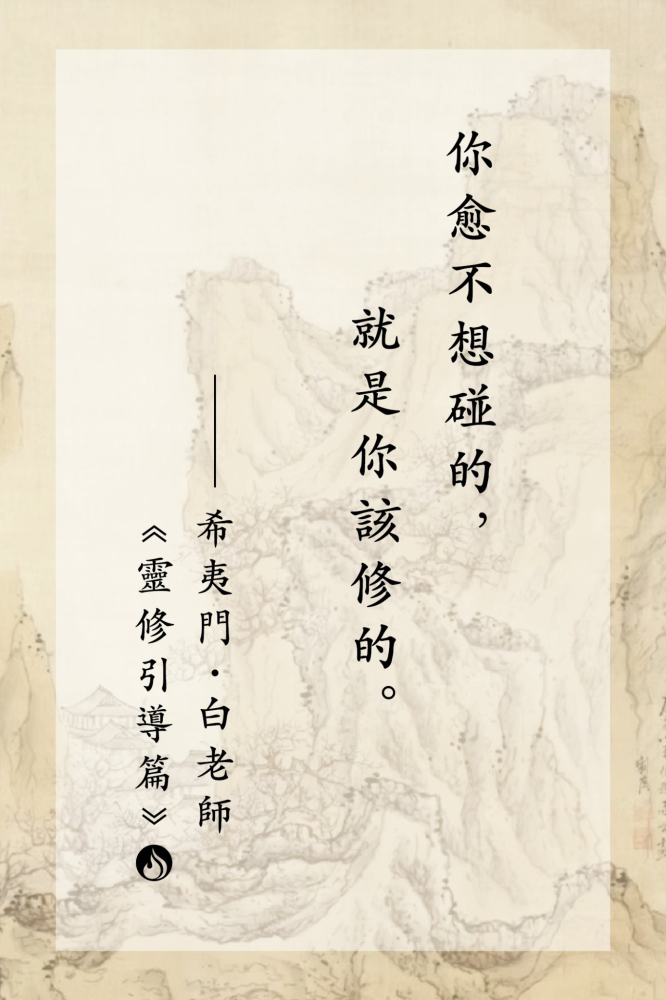 你愈不想碰的，
就是你該修的。
——希夷門·白老師
《靈修引導篇》